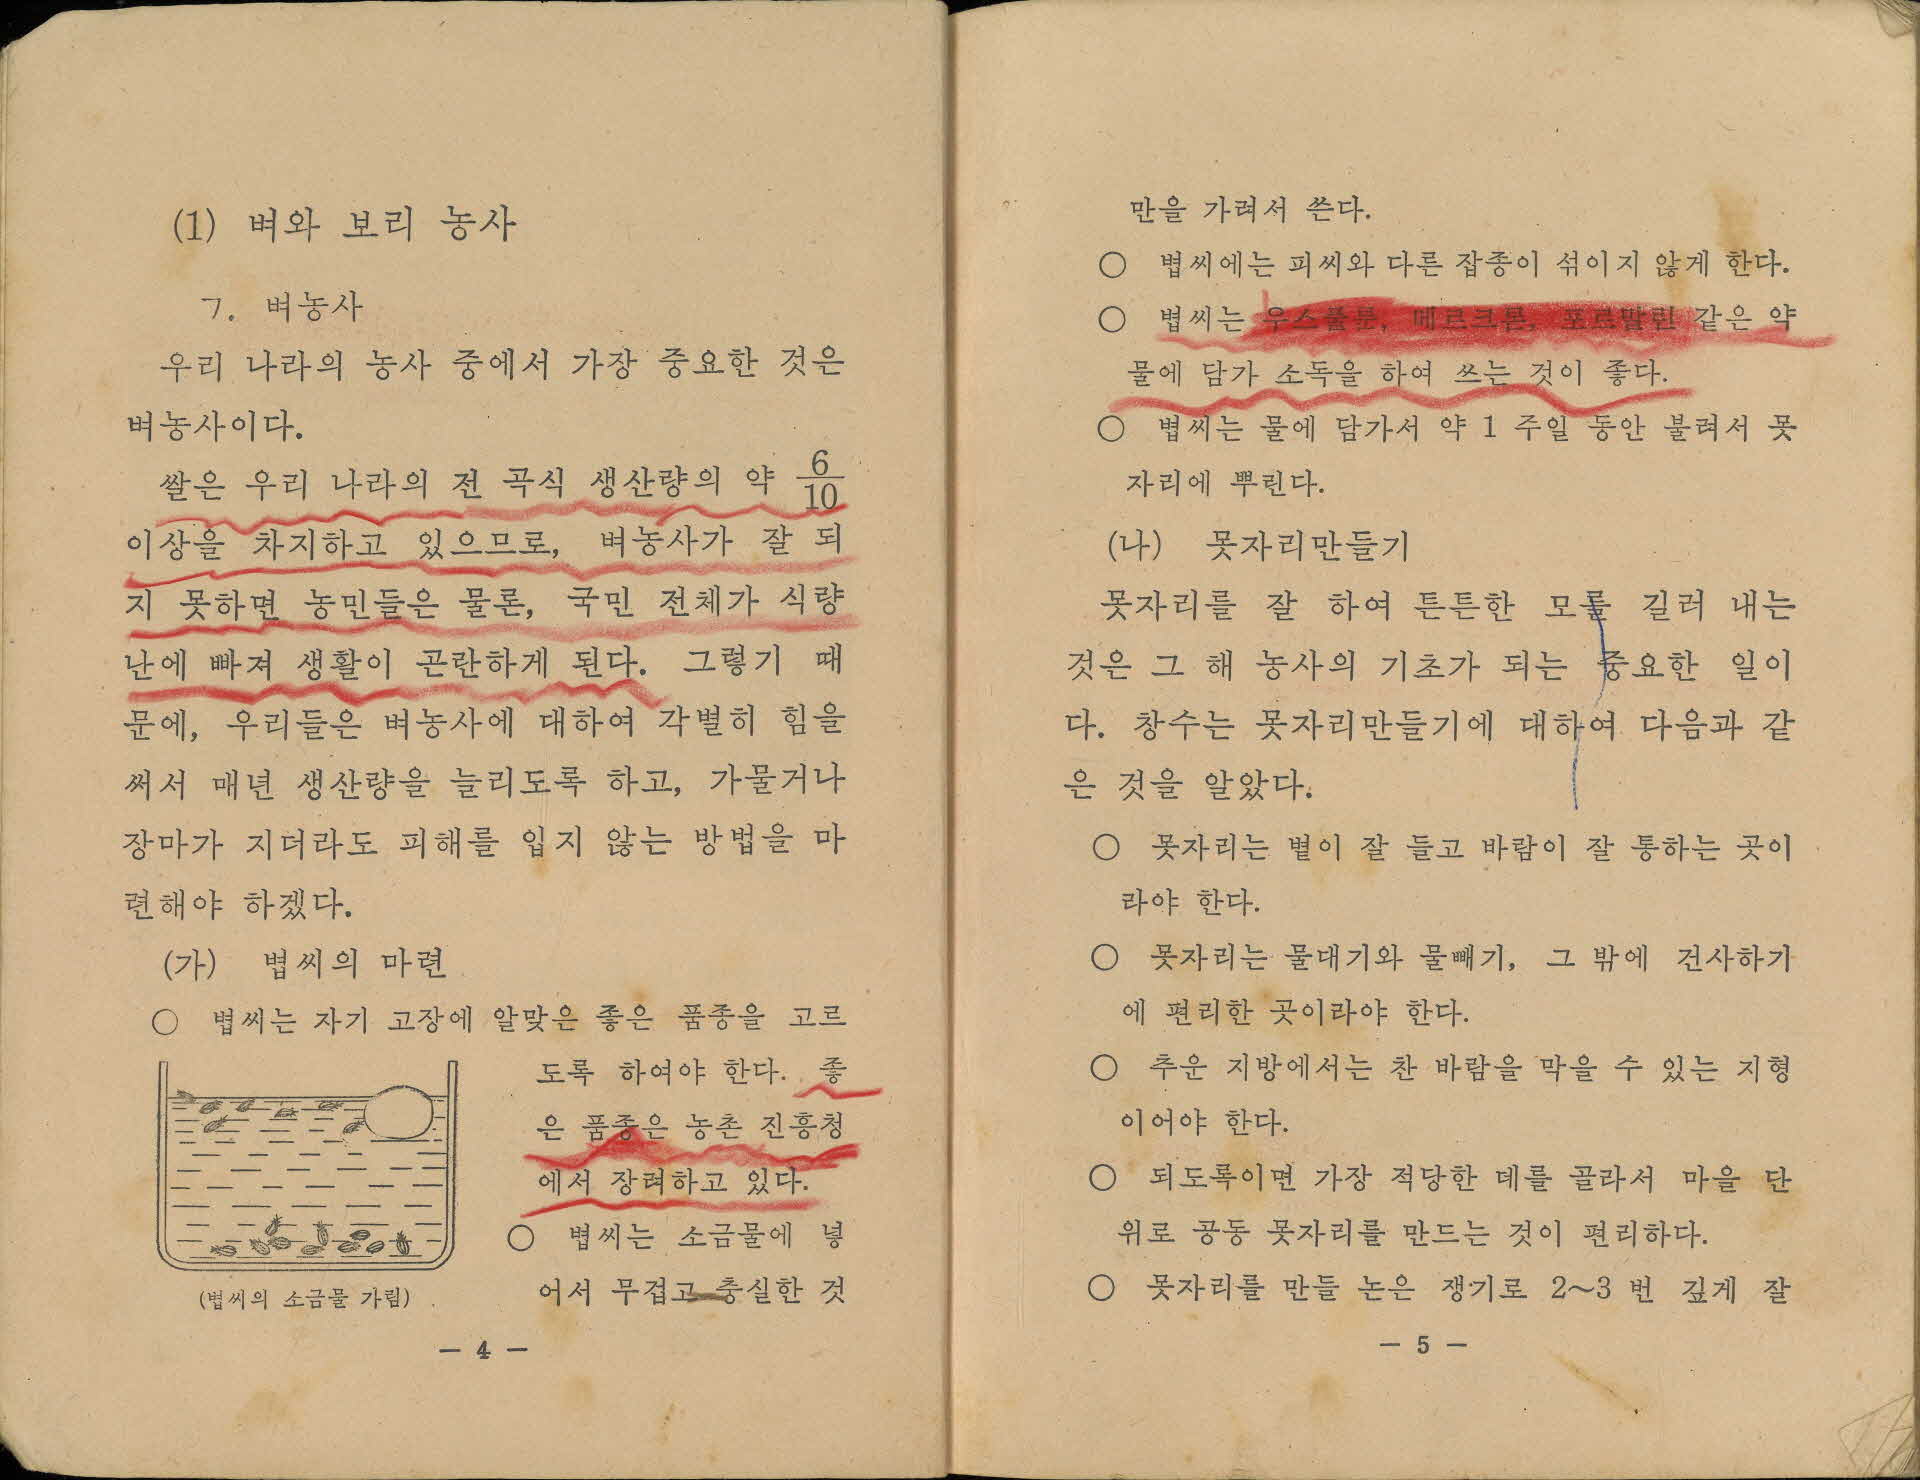 (1) 벼와 보리 농사
ㄱ. 벼농사
우리 나라의 농사 중에서 가장 중요한 것은
벼농사이다.
쌀은 우리 나라의 전 곡식 생산량의 약 6/10
이상을 차지하고 있으므로, 벼농사가 잘 되
지 못하면 농민들은 물론, 국민 전체가 식량
난에 빠져 생활이 곤란하게 된다. 그렇기 때
문에, 우리들은 벼농사에 대하여 각별히 힘을
써서 매년 생산량을 늘리도록 하고, 가물거나
장마가 지더라도 피해를 입지 않는 방법을 마
련해야 하겠다.
(가) 볍씨의 마련
○ 볍씨는 자기 고장에 알맞은 좋은 품종을 고르
도록 하여야 한다. 좋
은 품종은 농촌 진흥청
에서 장려하고 있다.
○ 볍씨는 소금물에 넣
어서 무겁고 충실한 것
(볍씨의 소금물 가림)
— 4 —
만을 가려서 쓴다.
○ 볍씨에는 피씨와 다른 잡종이 섞이지 않게 한다.
○ 볍씨는 우스풀룬, 메르크론, 포르말린 같은 약
물에 담가 소독을 하여 쓰는 것이 좋다.
○ 볍씨는 물에 담가서 약 1 주일 동안 불려서 못
자리에 뿌린다.
(나) 못자리만들기
못자리를 잘 하여 튼튼한 모를 길러 내는
것은 그 해 농사의 기초가 되는 중요한 일이
다. 창수는 못자리만들기에 대하여 다음과 같
은 것을 알았다.
○ 못자리는 볕이 잘 들고 바람이 잘 통하는 곳이
라야 한다.
○ 못자리는 물대기와 물빼기, 그 밖에 건사하기
에 편리한 곳이라야 한다.
○ 추운 지방에서는 찬 바람을 막을 수 있는 지형
이어야 한다.
○ 되도록이면 가장 적당한 데를 골라서 마을 단
위로 공동 못자리를 만드는 것이 편리하다.
○ 못자리를 만들 논은 쟁기로 2~3 번 깊게 잘
— 5 —